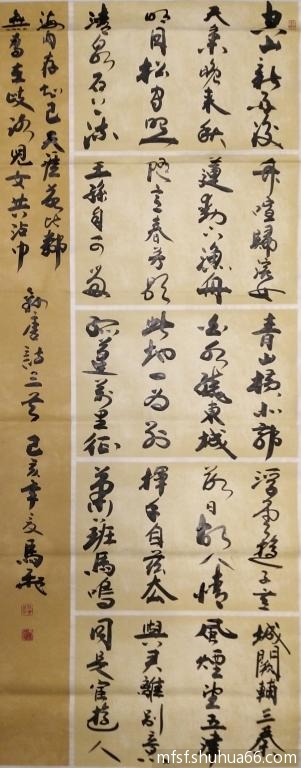 空山新雨後
天氣晚來秋
明月松間照
清泉石上流
竹喧歸浣女
蓮動下漁舟
隨意春芳歇
王孫自可留
青山橫北郭
白水繞東城
此地一為別
孤蓬萬里征
浮雲遊子意
落日故人情
揮手自茲去
蕭蕭班馬鳴
城闕輔三秦
風煙望五津
與君離別意
同是宦遊人
海內存知己天涯若比鄰
無為在歧路兒女共沾巾
錄唐詩三首 己亥年夏馬
mfsfshuhua66.com